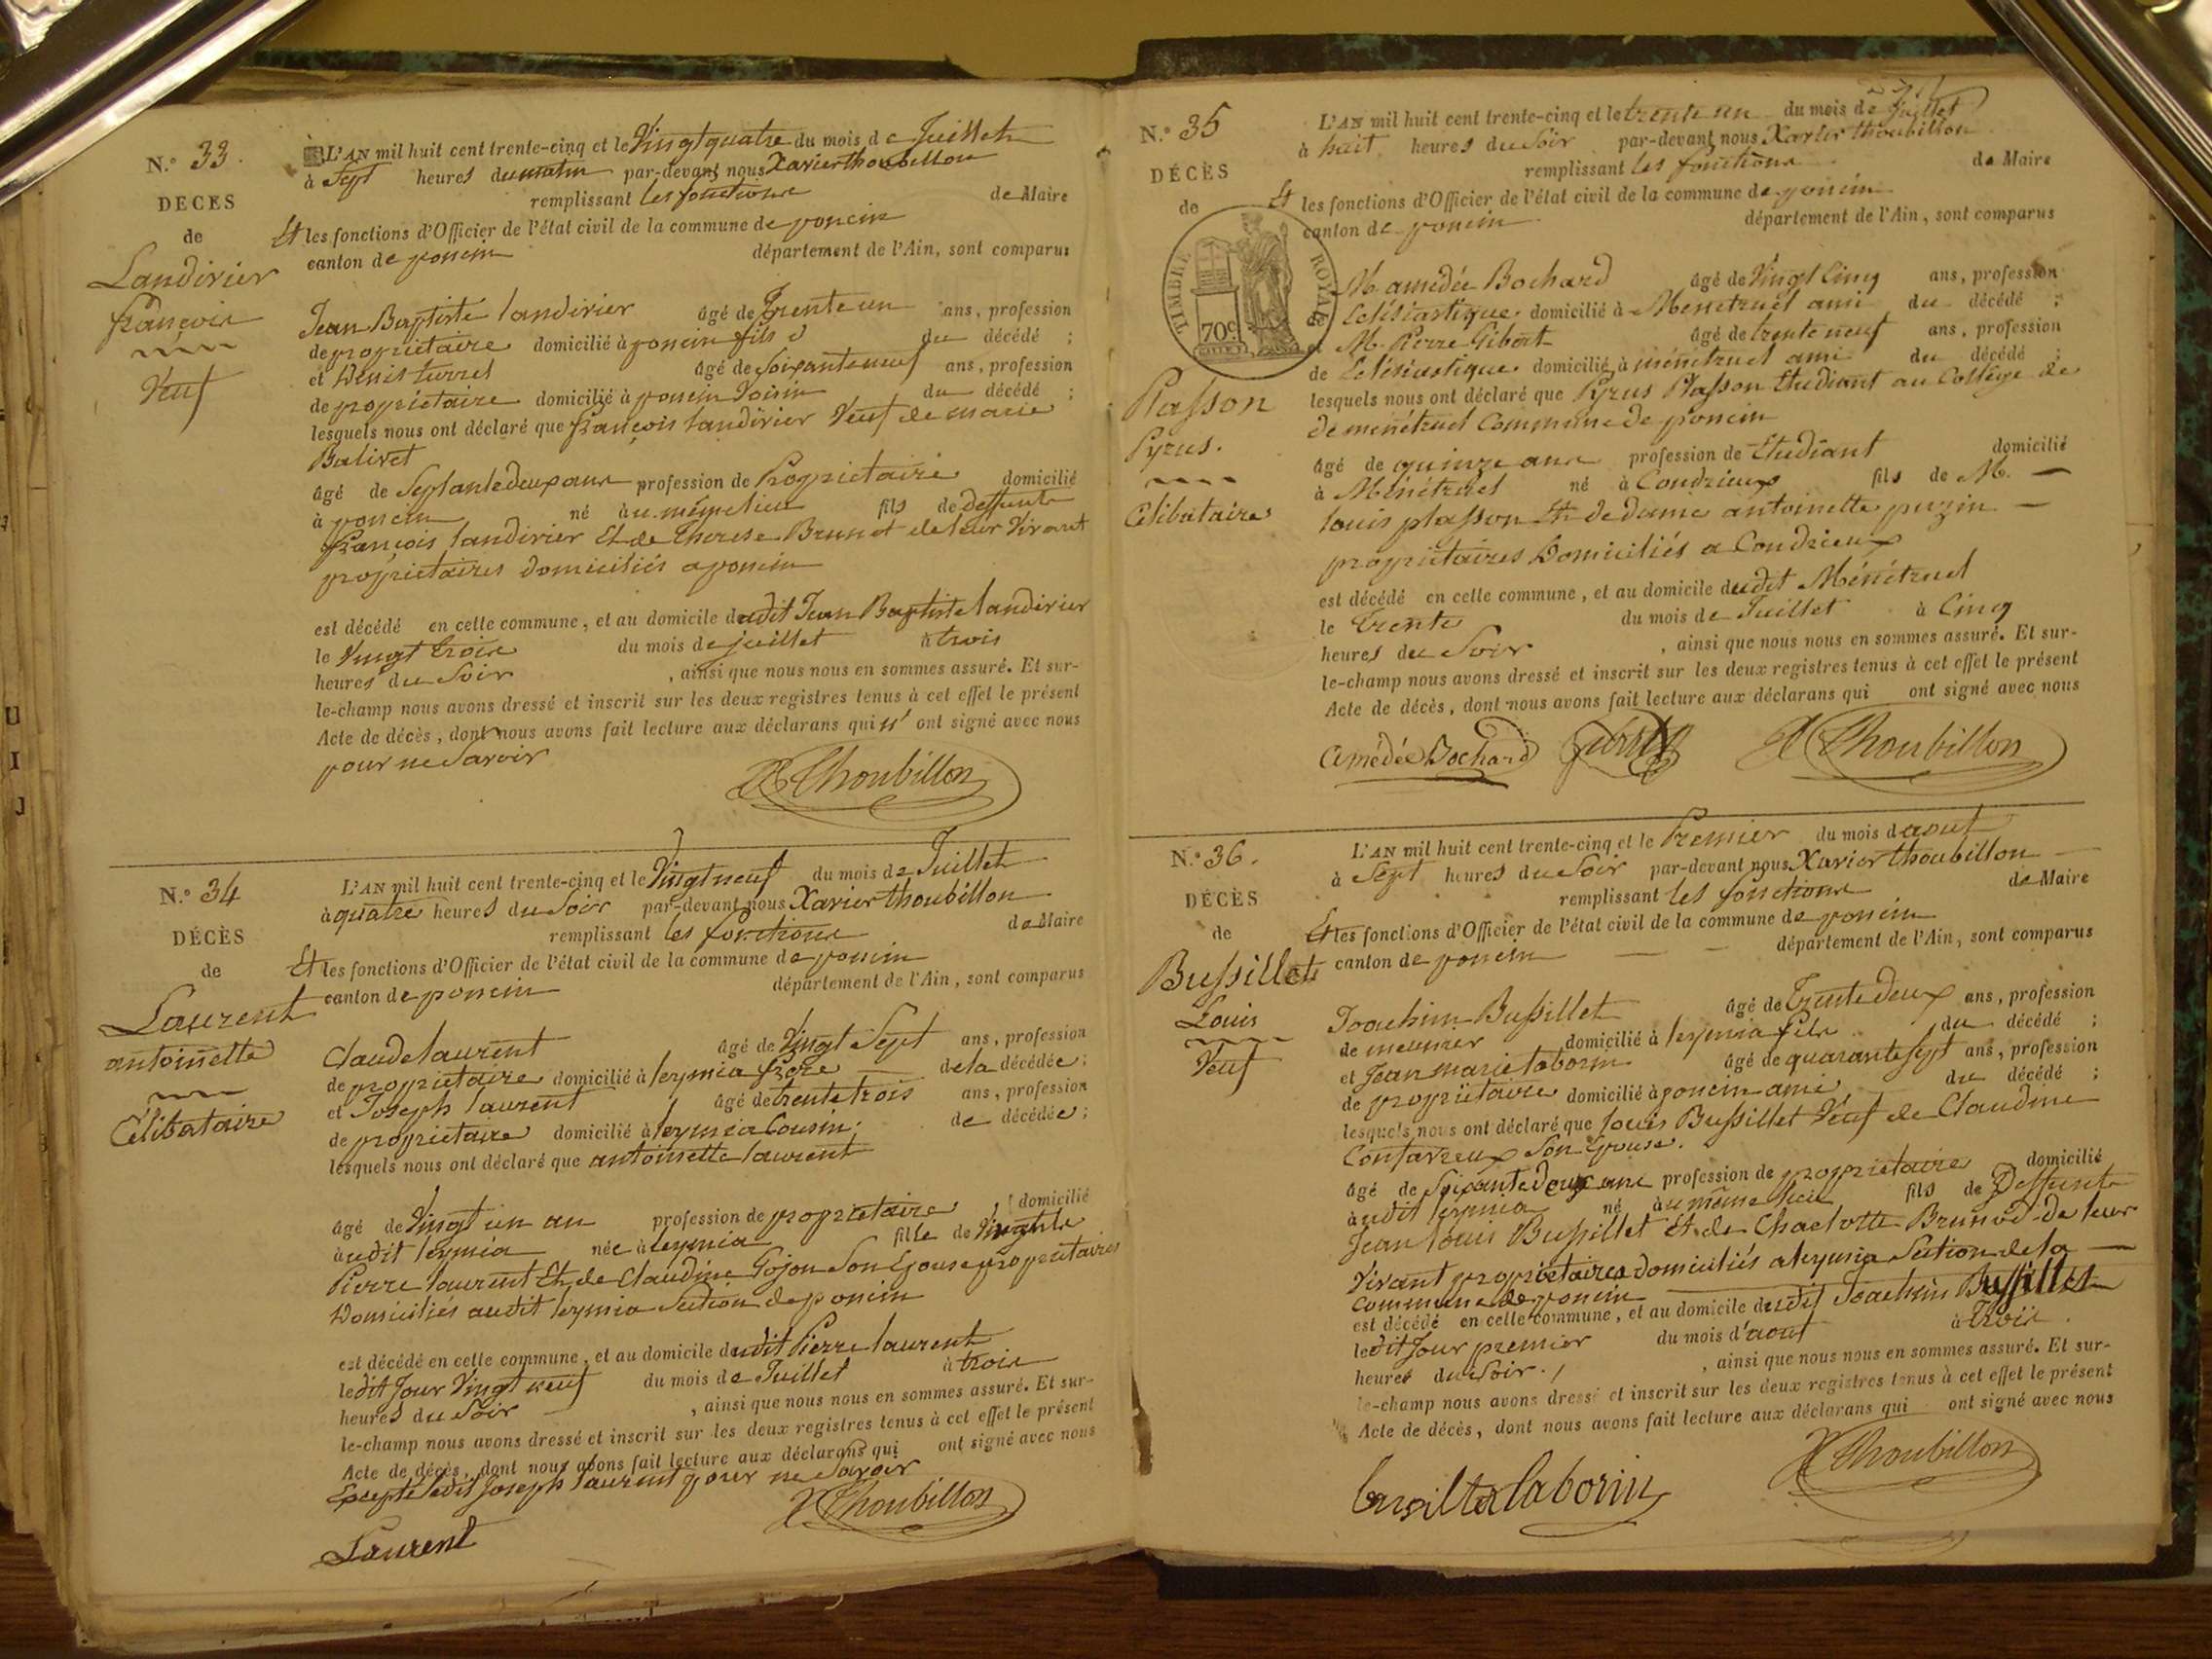 N.° 33.
DÉCÈS
de
Landirier
françois
Veuf
L'AN mil huit cent trente-cinq et le Vingt quatre du mois de Juillet
à Sept heures du matin par-devant nous Xavier thoubillon
remplissant les fonctions de Maire
Et les fonctions d'Officier de l'état civil de la commune de poncin
canton de poncin département de l'Ain, sont comparus
Jean Baptiste landirier âgé de Trente un ans, profession
de proprietaire domicilié à poncin fils du décédé ;
et Denis turrel âgé de Soixante neuf ans, profession
de proprietaire domicilié à poncin Voisin du décédé ;
lesquels nous ont déclaré que françois landirier Veuf de marie
Balivet
âgé de Septante deux ans profession de Proprietaire domicilié
à poncin né au même lieu fils de deffunts
françois landirier Et de Therese Brunet de leur Vivant
proprietaires domiciliés a poncin
est décédé en cette commune, et au domicile dudit Jean Baptiste landirier
le Vingt trois du mois de juillet à trois
heures du Soir, ainsi que nous nous en sommes assuré. Et sur-
le-champ nous avons dressé et inscrit sur les deux registres tenus à cet effet le présent
Acte de décès, dont nous avons fait lecture aux déclarans qui n' ont signé avec nous
pour ne Savoir
X Thoubillon
N.° 34
DÉCÈS
de
Laurent
antoinette
Célibataire
L'AN mil huit cent trente-cinq et le Vingt neuf du mois de Juillet
à quatre heures du Soir par-devant nous Xavier thoubillon
remplissant les fonctions de Maire
Et les fonctions d'Officier de l'état civil de la commune de poncin
canton de poncin département de l'Ain, sont comparus
Claude laurent âgé de Vingt Sept ans, profession
de proprietaire domicilié à leymia frere de la décédée ;
et Joseph laurent âgé de trente trois ans, profession
de proprietaire domicilié à leymia Cousin de décédée ;
lesquels nous ont déclaré que antoinette laurent
âgé de Vingt un an profession de proprietaire domicilié
audit leymia née à leymia fille de
Pierre laurent Et de Claudine Gojon Son Epouse proprietaires
Domiciliés audit leymia Section de poncin
est décédé en cette commune, et au domicile dudit Pierre laurent
ledit Jour Vingt neuf du mois de Juillet à trois
heures du Soir, ainsi que nous nous en sommes assuré. Et sur-
le-champ nous avons dressé et inscrit sur les deux registres tenus à cet effet le présent
Acte de décès, dont nous avons fait lecture aux déclarans qui ont signé avec nous
Excepté ledit Joseph laurent pour ne Savoir
X Thoubillon
Laurent
N.° 35
DÉCÈS
de
TIMBRE ROYAL
70c
Plasson
Pyrus.
Célibataire
L'AN mil huit cent trente-cinq et le trente un du mois de Juillet
à huit heures du Soir par-devant nous Xavier thoubillon
remplissant les fonctions de Maire
Et les fonctions d'Officier de l'état civil de la commune de poncin
canton de poncin département de l'Ain, sont comparus
M. amédée Bochard âgé de Vingt Cinq ans, profession
Eclésiastique. domicilié à Menetruel ami du décédé ;
et M. Pierre Gibert âgé de trente neuf ans, profession
de Eclésiastique. domicilié à ménétruel ami du décédé ;
lesquels nous ont déclaré que Pyrus Plasson Etudiant au Collège de
de ménétruel Commune de poncin
âgé de quinze ans profession de Etudiant domicilié
à Ménétruel né à Condrieux fils de M.
louis plasson Et de dame antoinette puzin
proprietaires Domiciliés a Condrieux
est décédé en cette commune, et au domicile dudit Ménétruel
le trente du mois de Juillet à Cinq
heures du Soir, ainsi que nous nous en sommes assuré. Et sur-
le-champ nous avons dressé et inscrit sur les deux registres tenus à cet effet le présent
Acte de décès, dont nous avons fait lecture aux déclarans qui ont signé avec nous
Amédée Bochard Gibert X Thoubillon
N.° 36.
DÉCÈS
de
Bussillet
Louis
Veuf
L'AN mil huit cent trente-cinq et le Premier du mois d'aout
à Sept heures du Soir par-devant nous Xavier thoubillon
remplissant les fonctions de Maire
Et les fonctions d'Officier de l'état civil de la commune de poncin
canton de poncin département de l'Ain, sont comparus
Joachim Bussillet âgé de Trente deux ans, profession
de meunier domicilié à leymia fils du décédé ;
et Jean marie laborin âgé de quarante Sept ans, profession
de proprietaire domicilié à poncin ami du décédé ;
lesquels nous ont déclaré que louis Bussillet Veuf de Claudine
Son Epouse.
âgé de Soixante Douze ans profession de proprietaire domicilié
audit leymia né au même lieu fils de Deffunts
Jean louis Bussillet Et de Charlotte Brunod de leur
Vivant proprietaires domiciliés a leymia Section de la
Commune de poncin
est décédé en cette commune, et au domicile dudit Joachim Bussillet
ledit Jour premier du mois d'aout à trois
heures du Soir, ainsi que nous nous en sommes assuré. Et sur-
le-champ nous avons dressé et inscrit sur les deux registres tenus à cet effet le présent
Acte de décès, dont nous avons fait lecture aux déclarans qui ont signé avec nous
laborin X Thoubillon